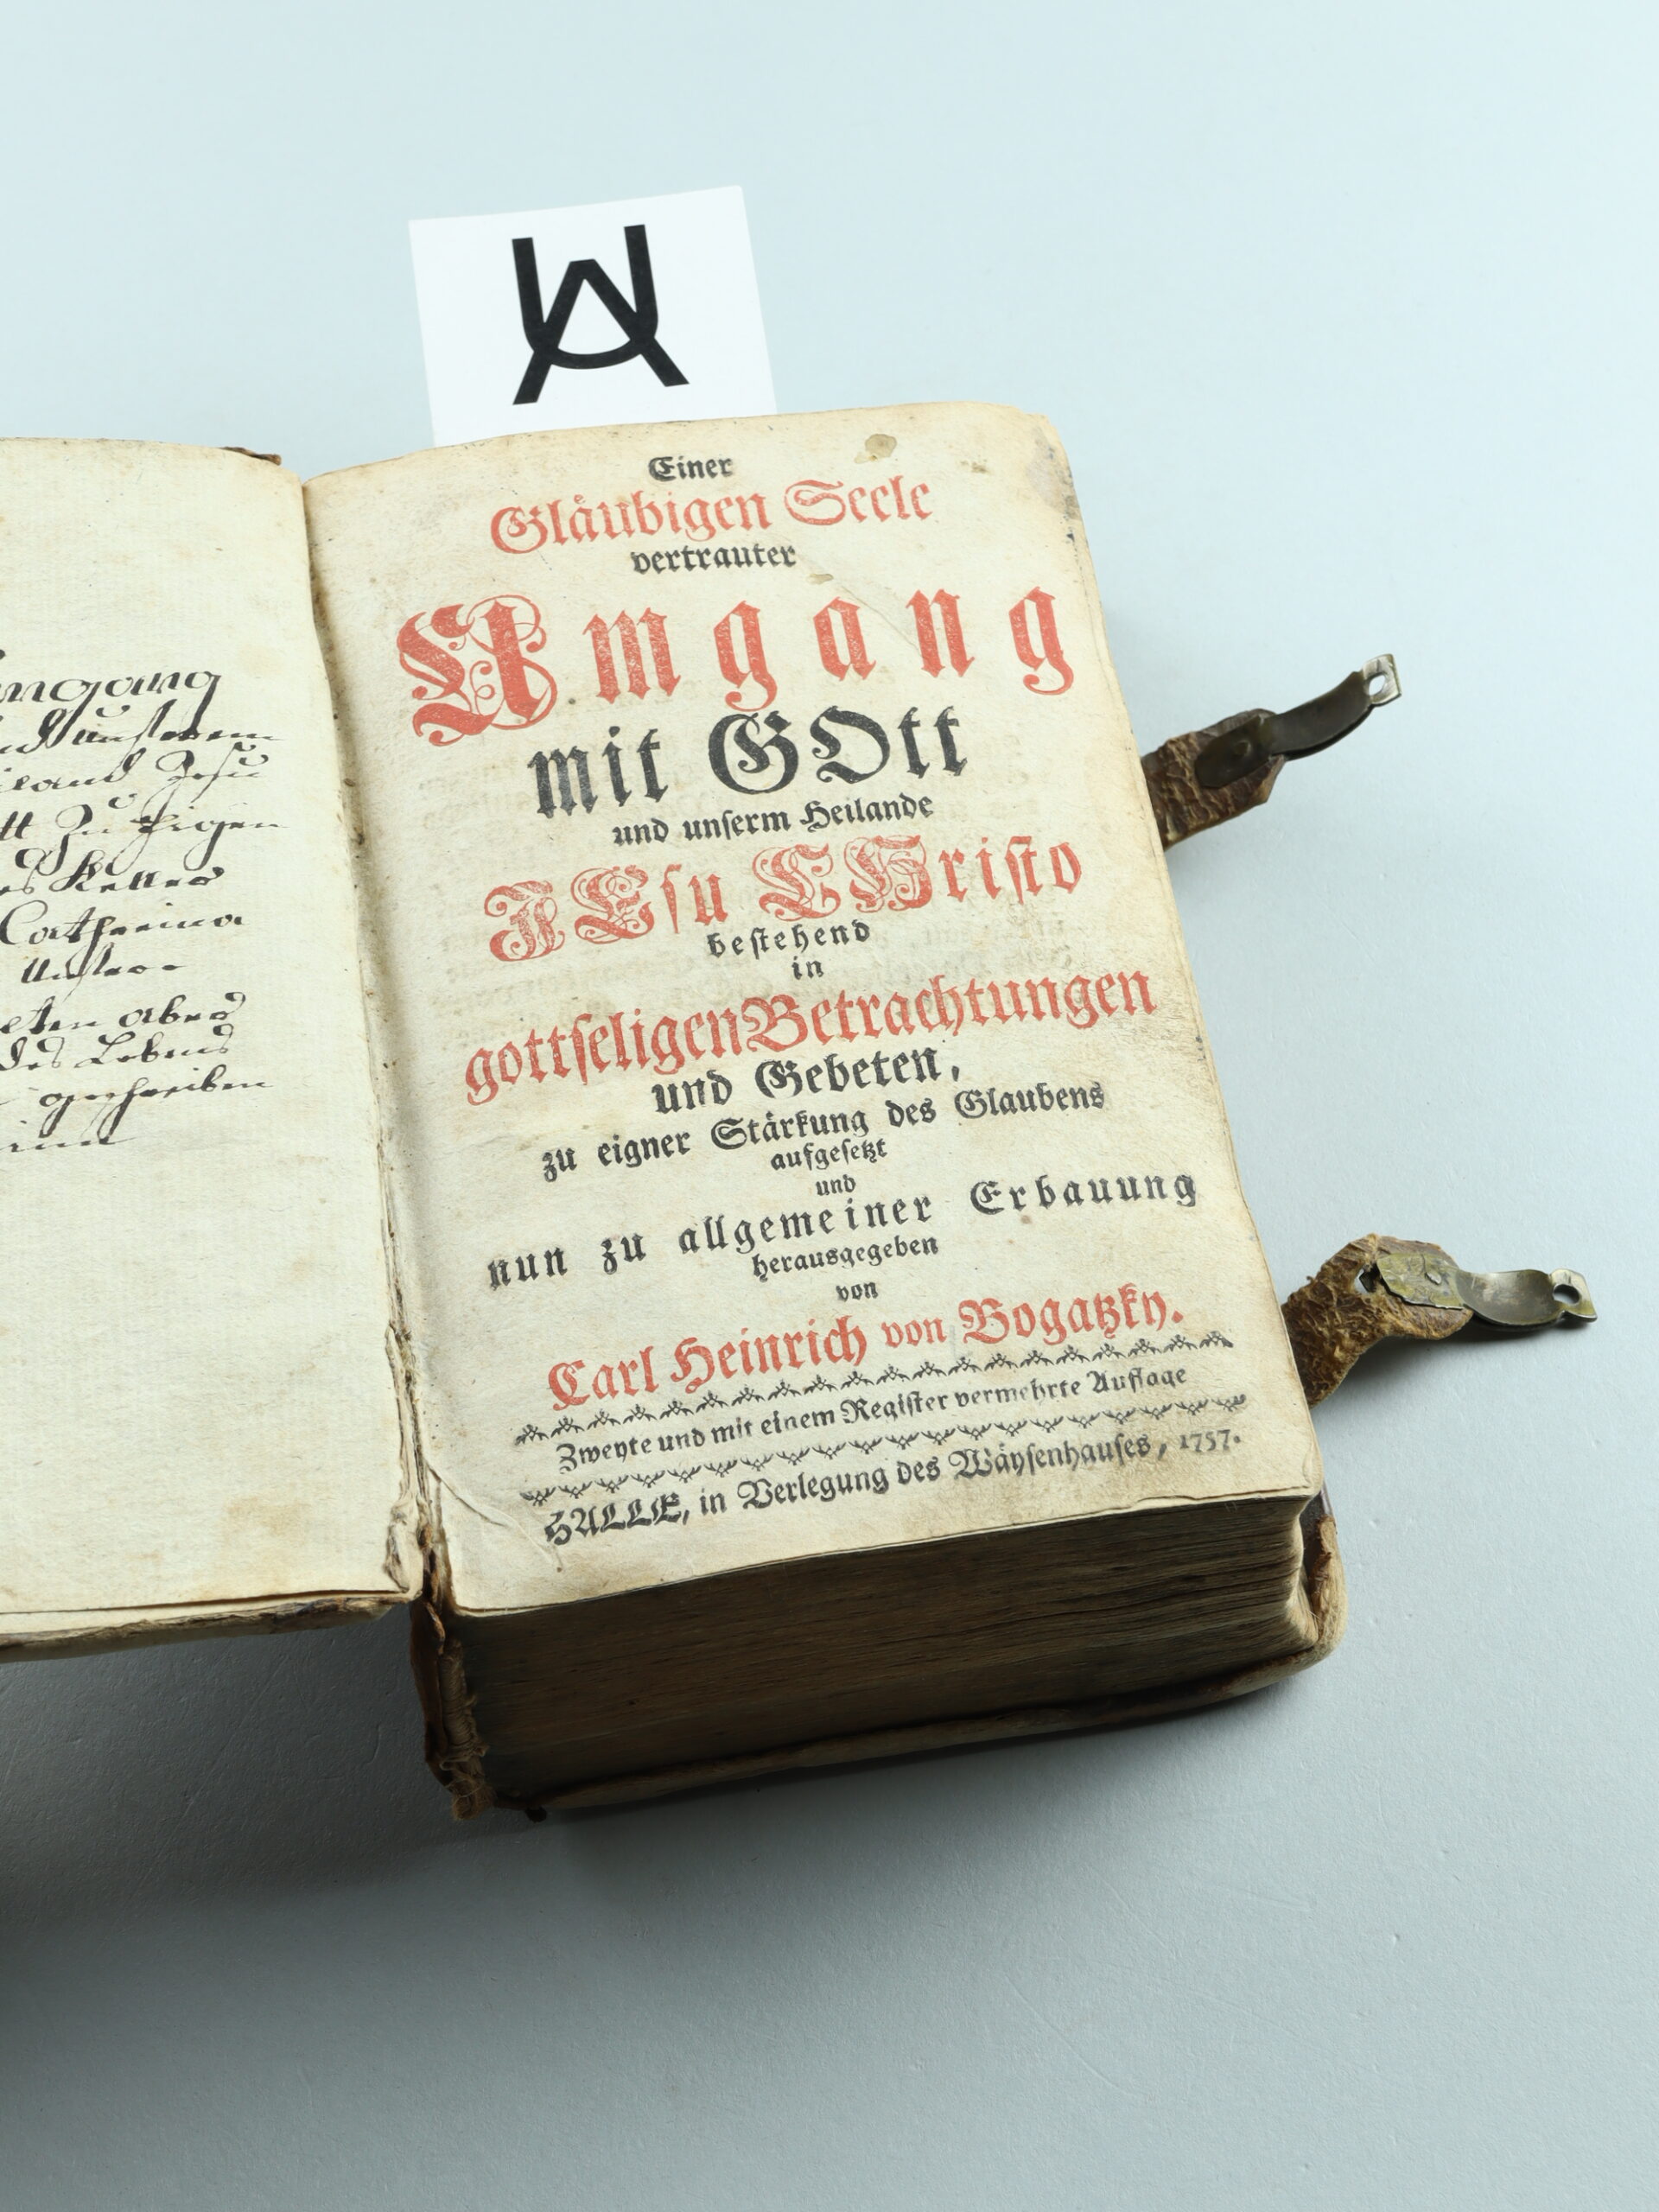 Einer
Gläubigen Seele
vertrauter
Umgang
mit GOtt
und unserm Heilande
JEsu CHristo
bestehend
in
gottseligen Betrachtungen
und Gebeten,
zu eigner Stärkung des Glaubens
aufgesetzt
und
nun zu allgemeiner Erbauung
herausgegeben
von
Carl Heinrich von Bogatzky.
Zweyte und mit einem Register vermehrte Auflage
HALLE, in Verlegung des Wäysenhauses, 1757.
Jesu
Catharina
des Lebens